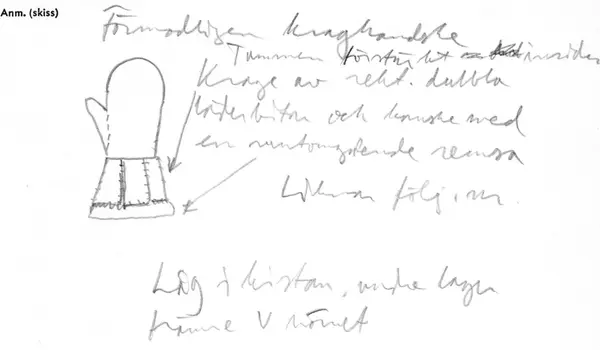 Anm. (skiss)
Förmodligen kraghandske
Tummen förstärkt insidan
Krage av rekt. dubbla
läderbitar och kanske med
en runtomgående remsa
Liknar följ. nr.
Låg i kistan, undre lager
främre V hörnet